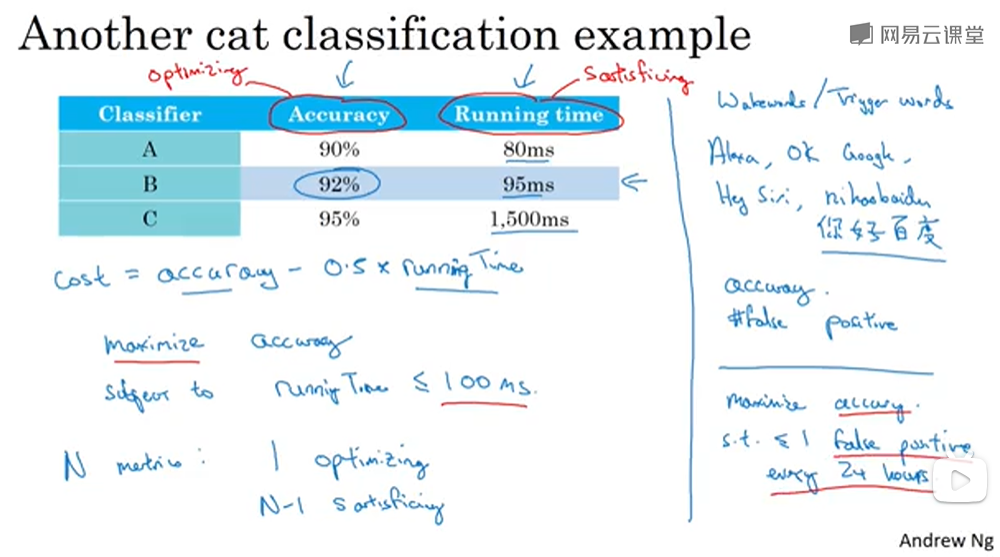 Another cat classification example
网易云课堂
optimizing
satisficing
Classifier Accuracy Running time
A 90% 80ms
B 92% 95ms
C 95% 1,500ms
cost = accuracy - 0.5 x runningTime
maximize accuracy
subject to runningTime ≤ 100 ms.
N metrics: 1 optimizing
N-1 satisficing
Wakewords / Trigger words
Alexa, OK Google,
Hey Siri, nihaobaidu
你好百度
accuracy.
#false positive
maximize accuracy.
s.t. ≤ 1 false positive
every 24 hours.
Andrew Ng